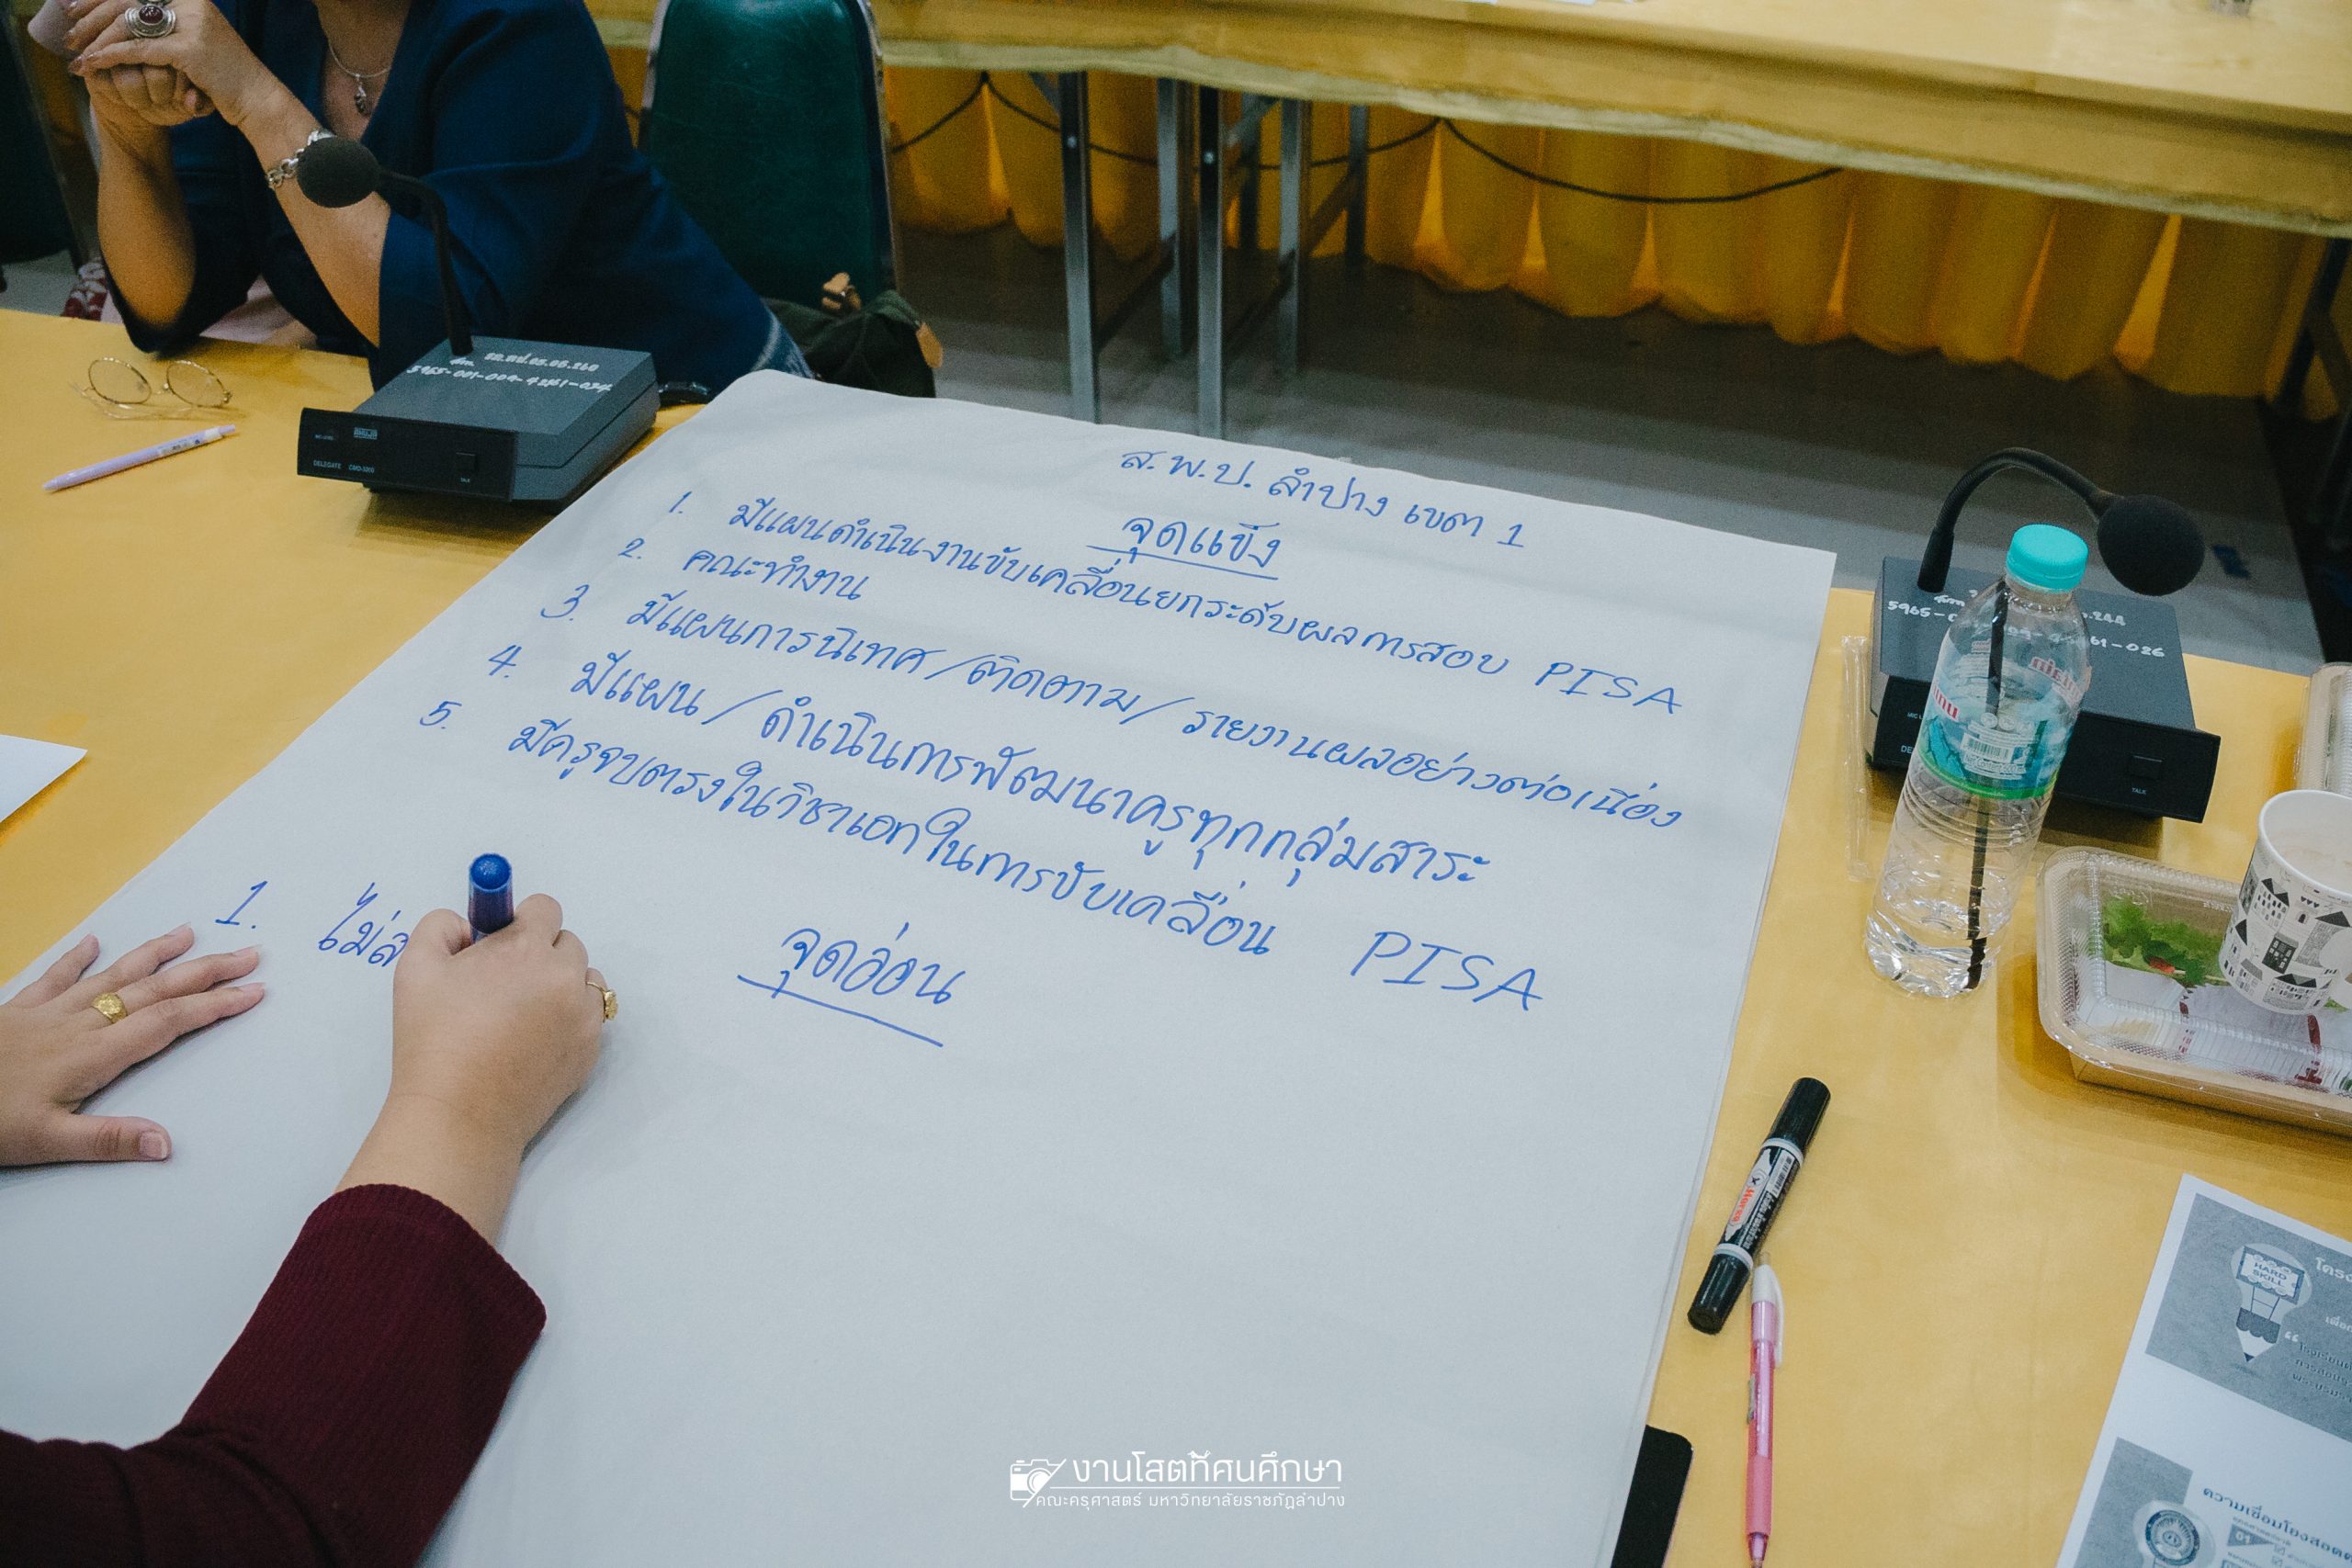 ส.พ.ป. ลำปาง เขต 1
จุดแข็ง
1. มีแผนดำเนินงานขับเคลื่อนยกระดับผลการสอบ PISA
2. คณะทำงาน
3. มีแผนการนิเทศ/ติดตาม/รายงานผลอย่างต่อเนื่อง
4. มีแผน/ดำเนินการพัฒนาครูทุกกลุ่มสาระ
5. มีครูจบตรงในวิชาเอกในการขับเคลื่อน PISA
จุดอ่อน
1. ไม่ส
5965-001-009-42161-034
DELEGATE
TALK
TALK
Horse
HARD
SKILL
ความเชื่อมโยงสอด
01
งานโสตทัศนศึกษา
คณะครุศาสตร์ มหาวิทยาลัยราชภัฏลำปาง